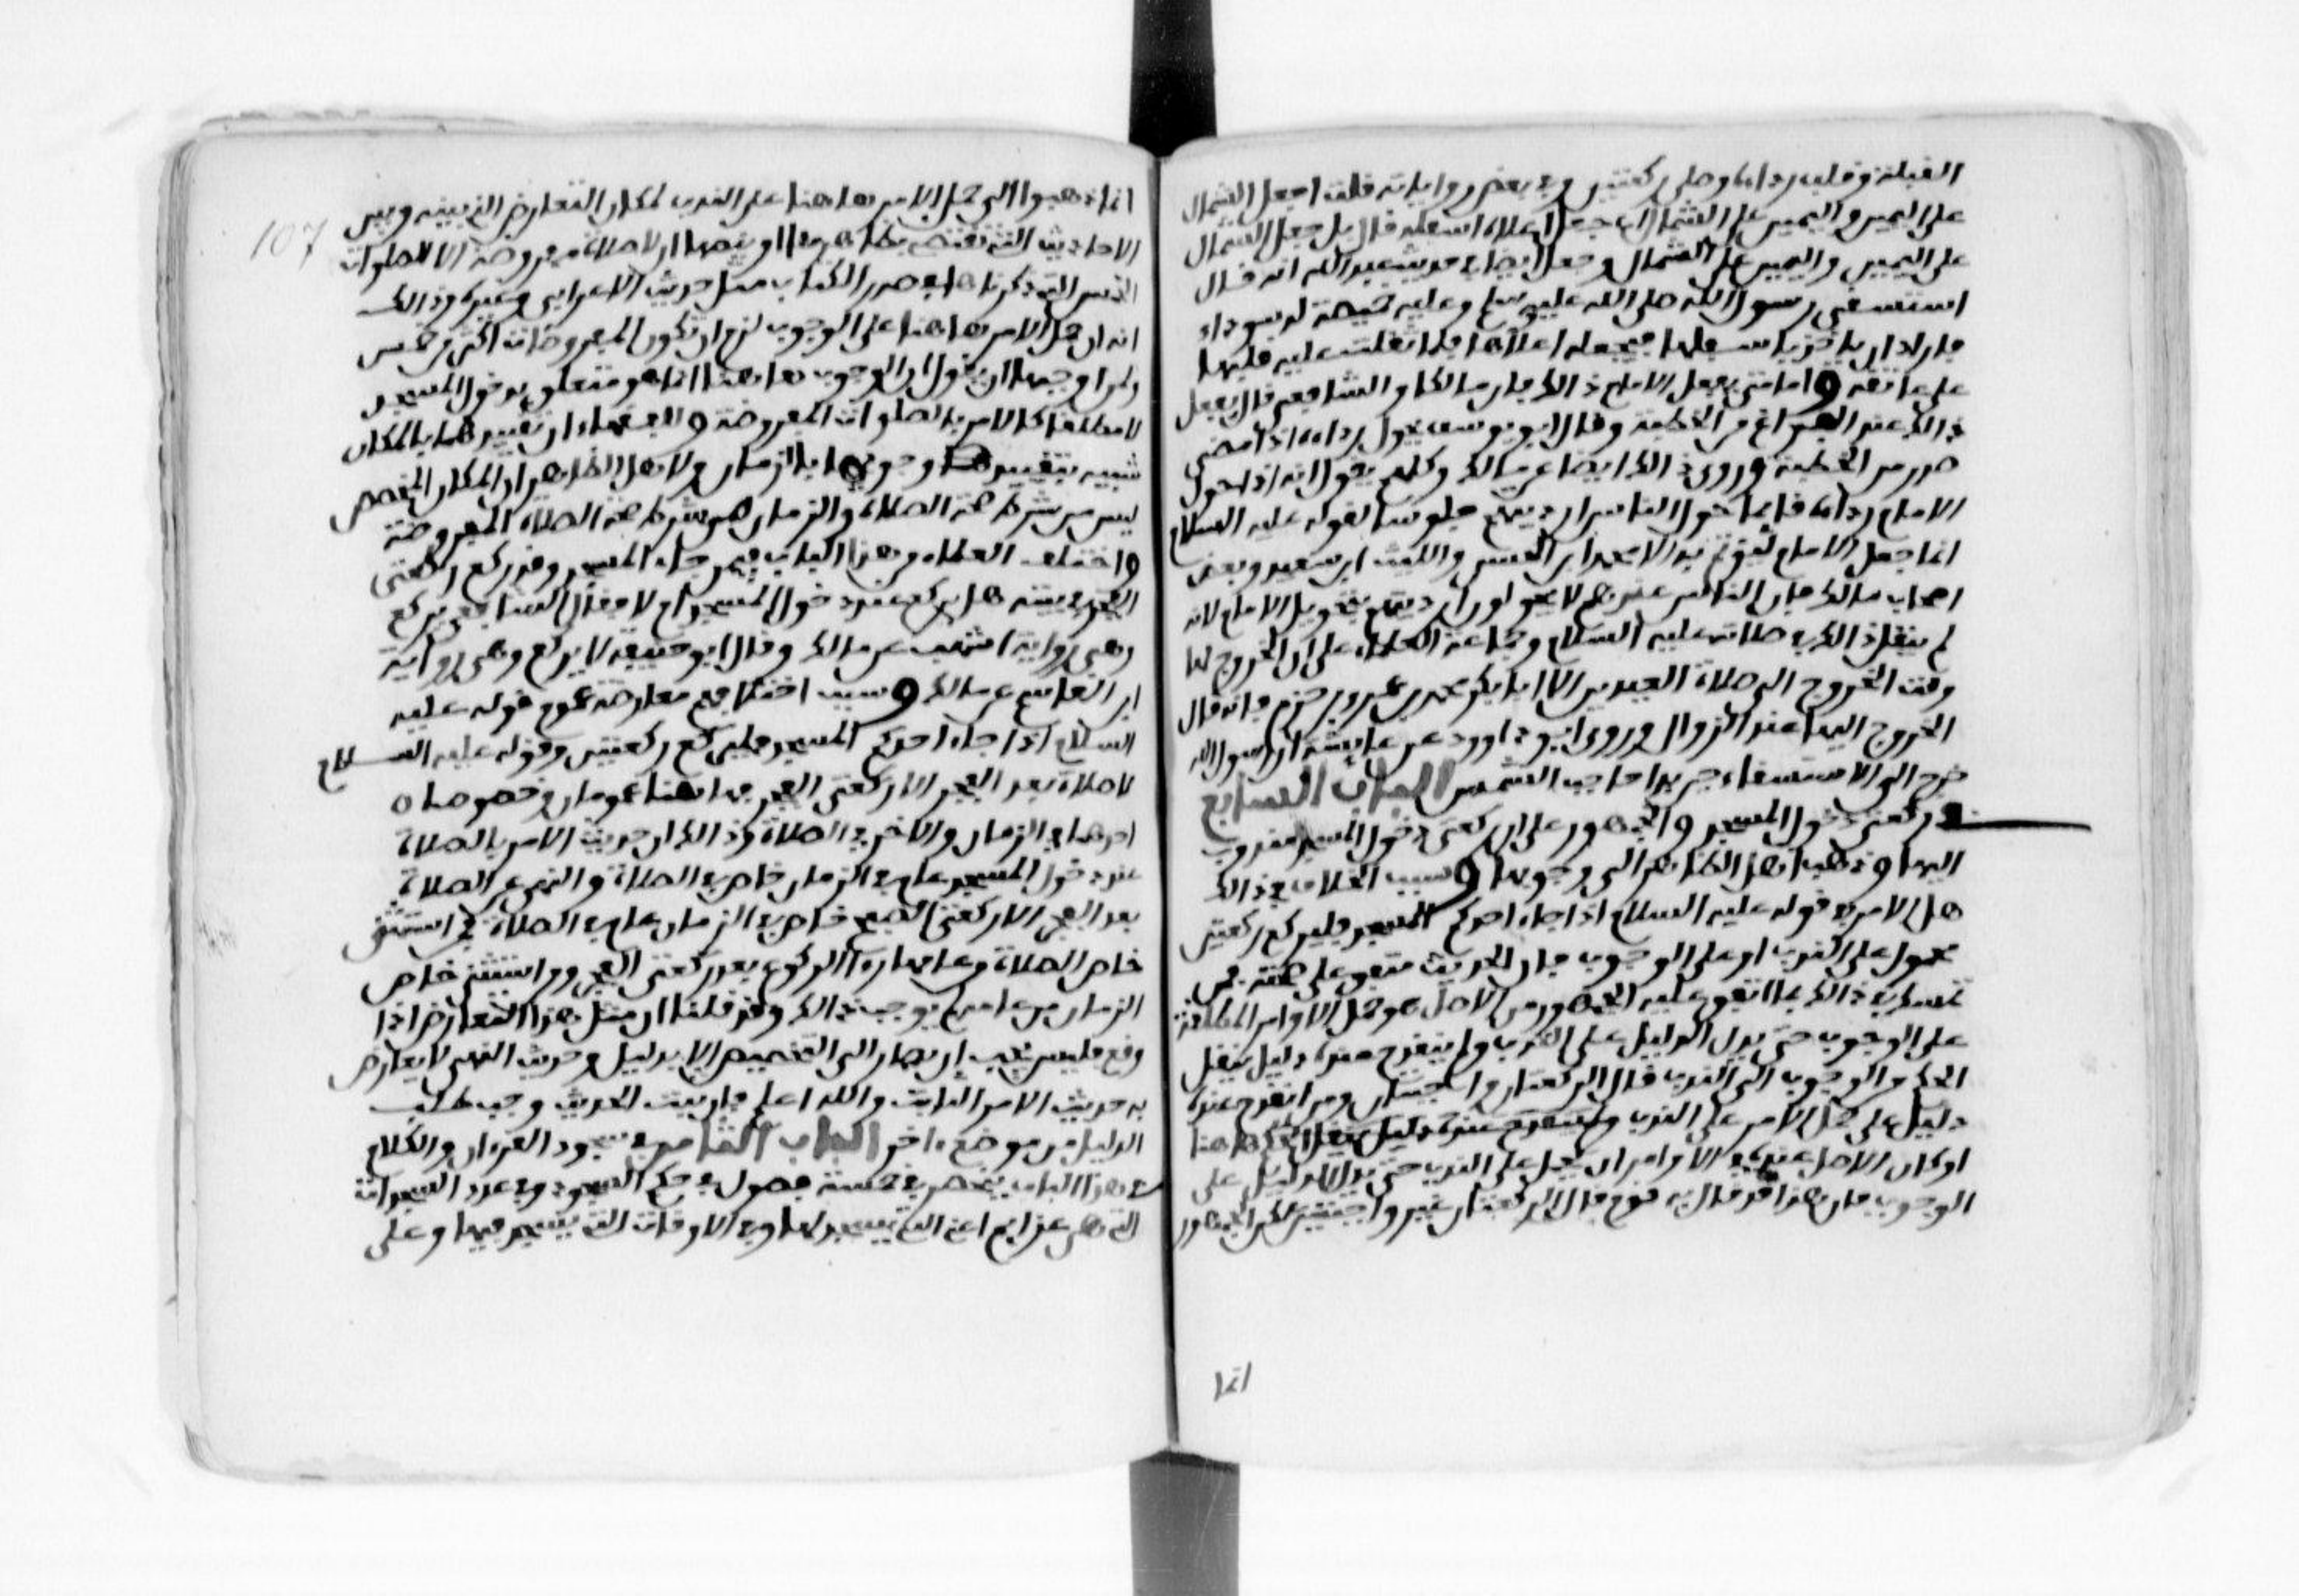 القبلة وقلب رداءه وصلى ركعتين وفي بعض رواياته قلت اجعل الشمال
على اليمين واليمين على الشمال ام جعل اعلاه اسفله قال بل جعل الشمال
على اليمين واليمين على الشمال وجعل ايضا في حديث عبد الله انه قال
استسقى رسول الله صلى الله عليه وسلم وعليه خميصة له سوداء
فاراد ان ياخذ باسفلها فيجعله اعلاها فلما ثقلت عليه قلبها
على عاتقه واما متى يفعل الامام ذالك فان مالكا والشافعي قال يفعل
ذالك عند الفراغ من الخطبة وقال ابو يوسف يحول رداءه اذا مضى
صدر من الخطبة وروي ذالك ايضا عن مالك وكلهم يقول انه اذا حول
الامام رداءه قائما حول الناس ارديتهم جلوسا لقوله عليه السلام
انما جعل الامام ليؤتم به الا محمد ابن الحسن والليث ابن سعيد وبعض
اصحاب مالك فان الناس عندهم لا يحولون ارديتهم بتحويل الامام لانه
لم ينقل ذالك في صلاته عليه السلام وجماعة العلماء على ان الخروج لها
وقت الخروج الى صلاة العيدين الا ابا بكر محمد بن عمرو بن حزم فانه قال
الخروج اليها عند الزوال وروى ابو داوود عن عايشة ان رسول الله
خرج الى الاستسقاء حين بدا حاجب الشمس الباب السابع
في ركعتي دخول المسجد والجمهور على ان ركعتي دخول المسجد مندوب
اليها وذهب اهل الظاهر الى وجوبها وسبب الخلاف في ذالك
هل الامر في قوله عليه السلام اذا جاء احدكم المسجد فليركع ركعتين
محمول على الندب او على الوجوب فان الحديث متفق على صحته فمن
تمسك في ذالك بما اتفق عليه الجمهور من ان الاصل هو حمل الاوامر المطلقة
على الوجوب حتى يدل الدليل على الندب ولم ينقدح عنده دليل ينقل
الحكم من الوجوب الى الندب قال الركعتان واجبتان ومن انقدح عنده
دليل على حمل الامر على الندب ولم ينقدح عنده دليل ينقل الحكم هاهنا
او كان الاصل عنده في الاوامر ان تحمل على الندب حتى يدل الدليل على
الوجوب فان هذا قد قال به قوم قال الركعتان غير واجبتين لكن الجمهور
انما
107
انما ذهبوا الى حمل الامر هاهنا على الندب لمكان التعارض الذي بينه وبين
الاحاديث التي تقتضي بظاهرها او بنصها ان لا صلاة مفروضة الا الصلوات
الخمس التي ذكرناها في صدر الكتاب مثل حديث الاعرابي وغيره وذالك
انه ان حمل الامر هاهنا على الوجوب لزم ان تكون المفروضات اكثر من خمس
ولمن اوجبها ان يقول ان الوجوب هاهنا انما هو متعلق بدخول المسجد
لا مطلقا كالامر بالصلوات المفروضة وللفقهاء ان تقييدها بالمكان
شبيه بتقييد وجوبها بالزمان ولاهل الظاهر ان المكان المخصص
ليس من شرط صحة الصلاة والزمان من شرط صحة الصلاة المفروضة
واختلف العلماء من هذا الباب فيمن جاء المسجد وقد ركع ركعتي
الفجر في بيته هل يركع عند دخول المسجد ام لا فقال الشافعي يركع
وهي رواية اشهب عن مالك وقال ابو حنيفة لا يركع وهي رواية
ابن القاسم عن مالك وسبب اختلافهم معارضة عموم قوله عليه
السلام اذا جاء احدكم المسجد فليركع ركعتين وقوله عليه السلام
لا صلاة بعد الفجر الا ركعتي الفجر فهاهنا عمومان وخصوصان
احدهما في الزمان والاخر في الصلاة وذالك ان حديث الامر بالصلاة
عند دخول المسجد عام في الزمان خاص في الصلاة والنهي عن الصلاة
بعد الفجر الا ركعتي الصبح خاص في الزمان عام في الصلاة فمن استثنى
خاص الصلاة من عامها راى الركوع بعد ركعتي الفجر ومن استثنى خاص
الزمان من عامه لم يوجب ذالك وقد قلنا ان مثل هذا التعارض اذا
وقع فليس يجب ان يصار الى التخصيص الا بدليل وحديث النهي لا يعارض
به حديث الامر الثابت والله اعلم فان ثبت الحديث وجب طلب
الدليل من موضع ءاخر الباب الثامن في سجود القرءان والكلام
في هذا الباب ينحصر في خمسة فصول في حكم السجود وفي عدد السجدات
التي هي عزايم اعني التي يسجد لها وفي الاوقات التي يسجد فيها وعلى